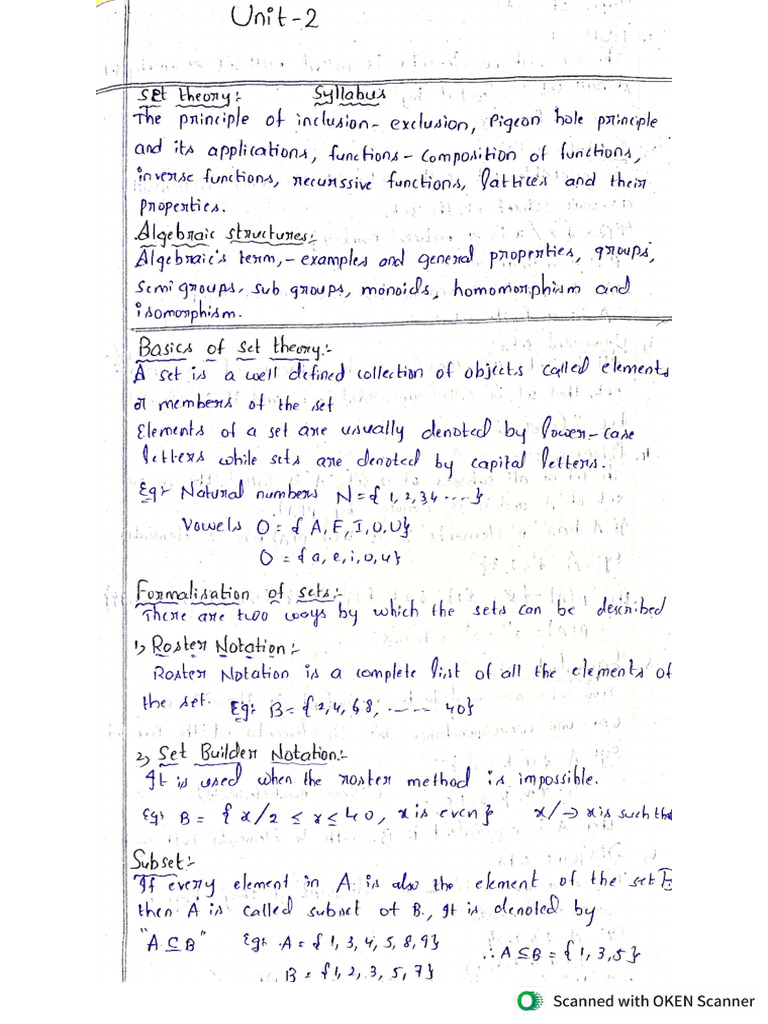 Unit-2
Set theory:- Syllabus
The principle of inclusion-exclusion, Pigeon hole principle
and its applications, functions-composition of functions,
inverse functions, recurssive functions, lattices and their
properties.
Algebraic structures:-
Algebraic's term,-examples and general properties, groups,
semi groups, sub groups, monoids, homomorphism and
isomorphism.
Basics of set theory:-
A set is a well defined collection of objects called elements
or members of the set
Elements of a set are usually denoted by lower-case
letters while sets are denoted by capital letters.
Eg:- Natural numbers N={1,2,34----}
Vowels O={A,E,I,O,U}
O={a,e,i,o,u}
Formalisation of sets:-
There are two ways by which the sets can be described
1) Roster Notation:-
Roster Notation is a complete list of all the elements of
the set. Eg: B={2,4,6 8, ---- 40}
2) Set Builder Notation:-
It is used when the roster method is impossible.
Eg: B= {x/2 ≤ x ≤ 40, x is even} x/→ x is such tha
Subset:-
If every element in A is also the element of the set B
then A is called subset of B., It is denoted by
"A⊆B" Eg: A={1,3,4,5,8,9} ∴A⊆B={1,3,5}
B={1,2,3,5,7}
Scanned with OKEN Scanner